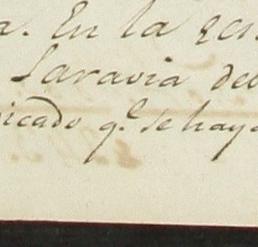 a. En la
Saravia de
icado q.e se haya